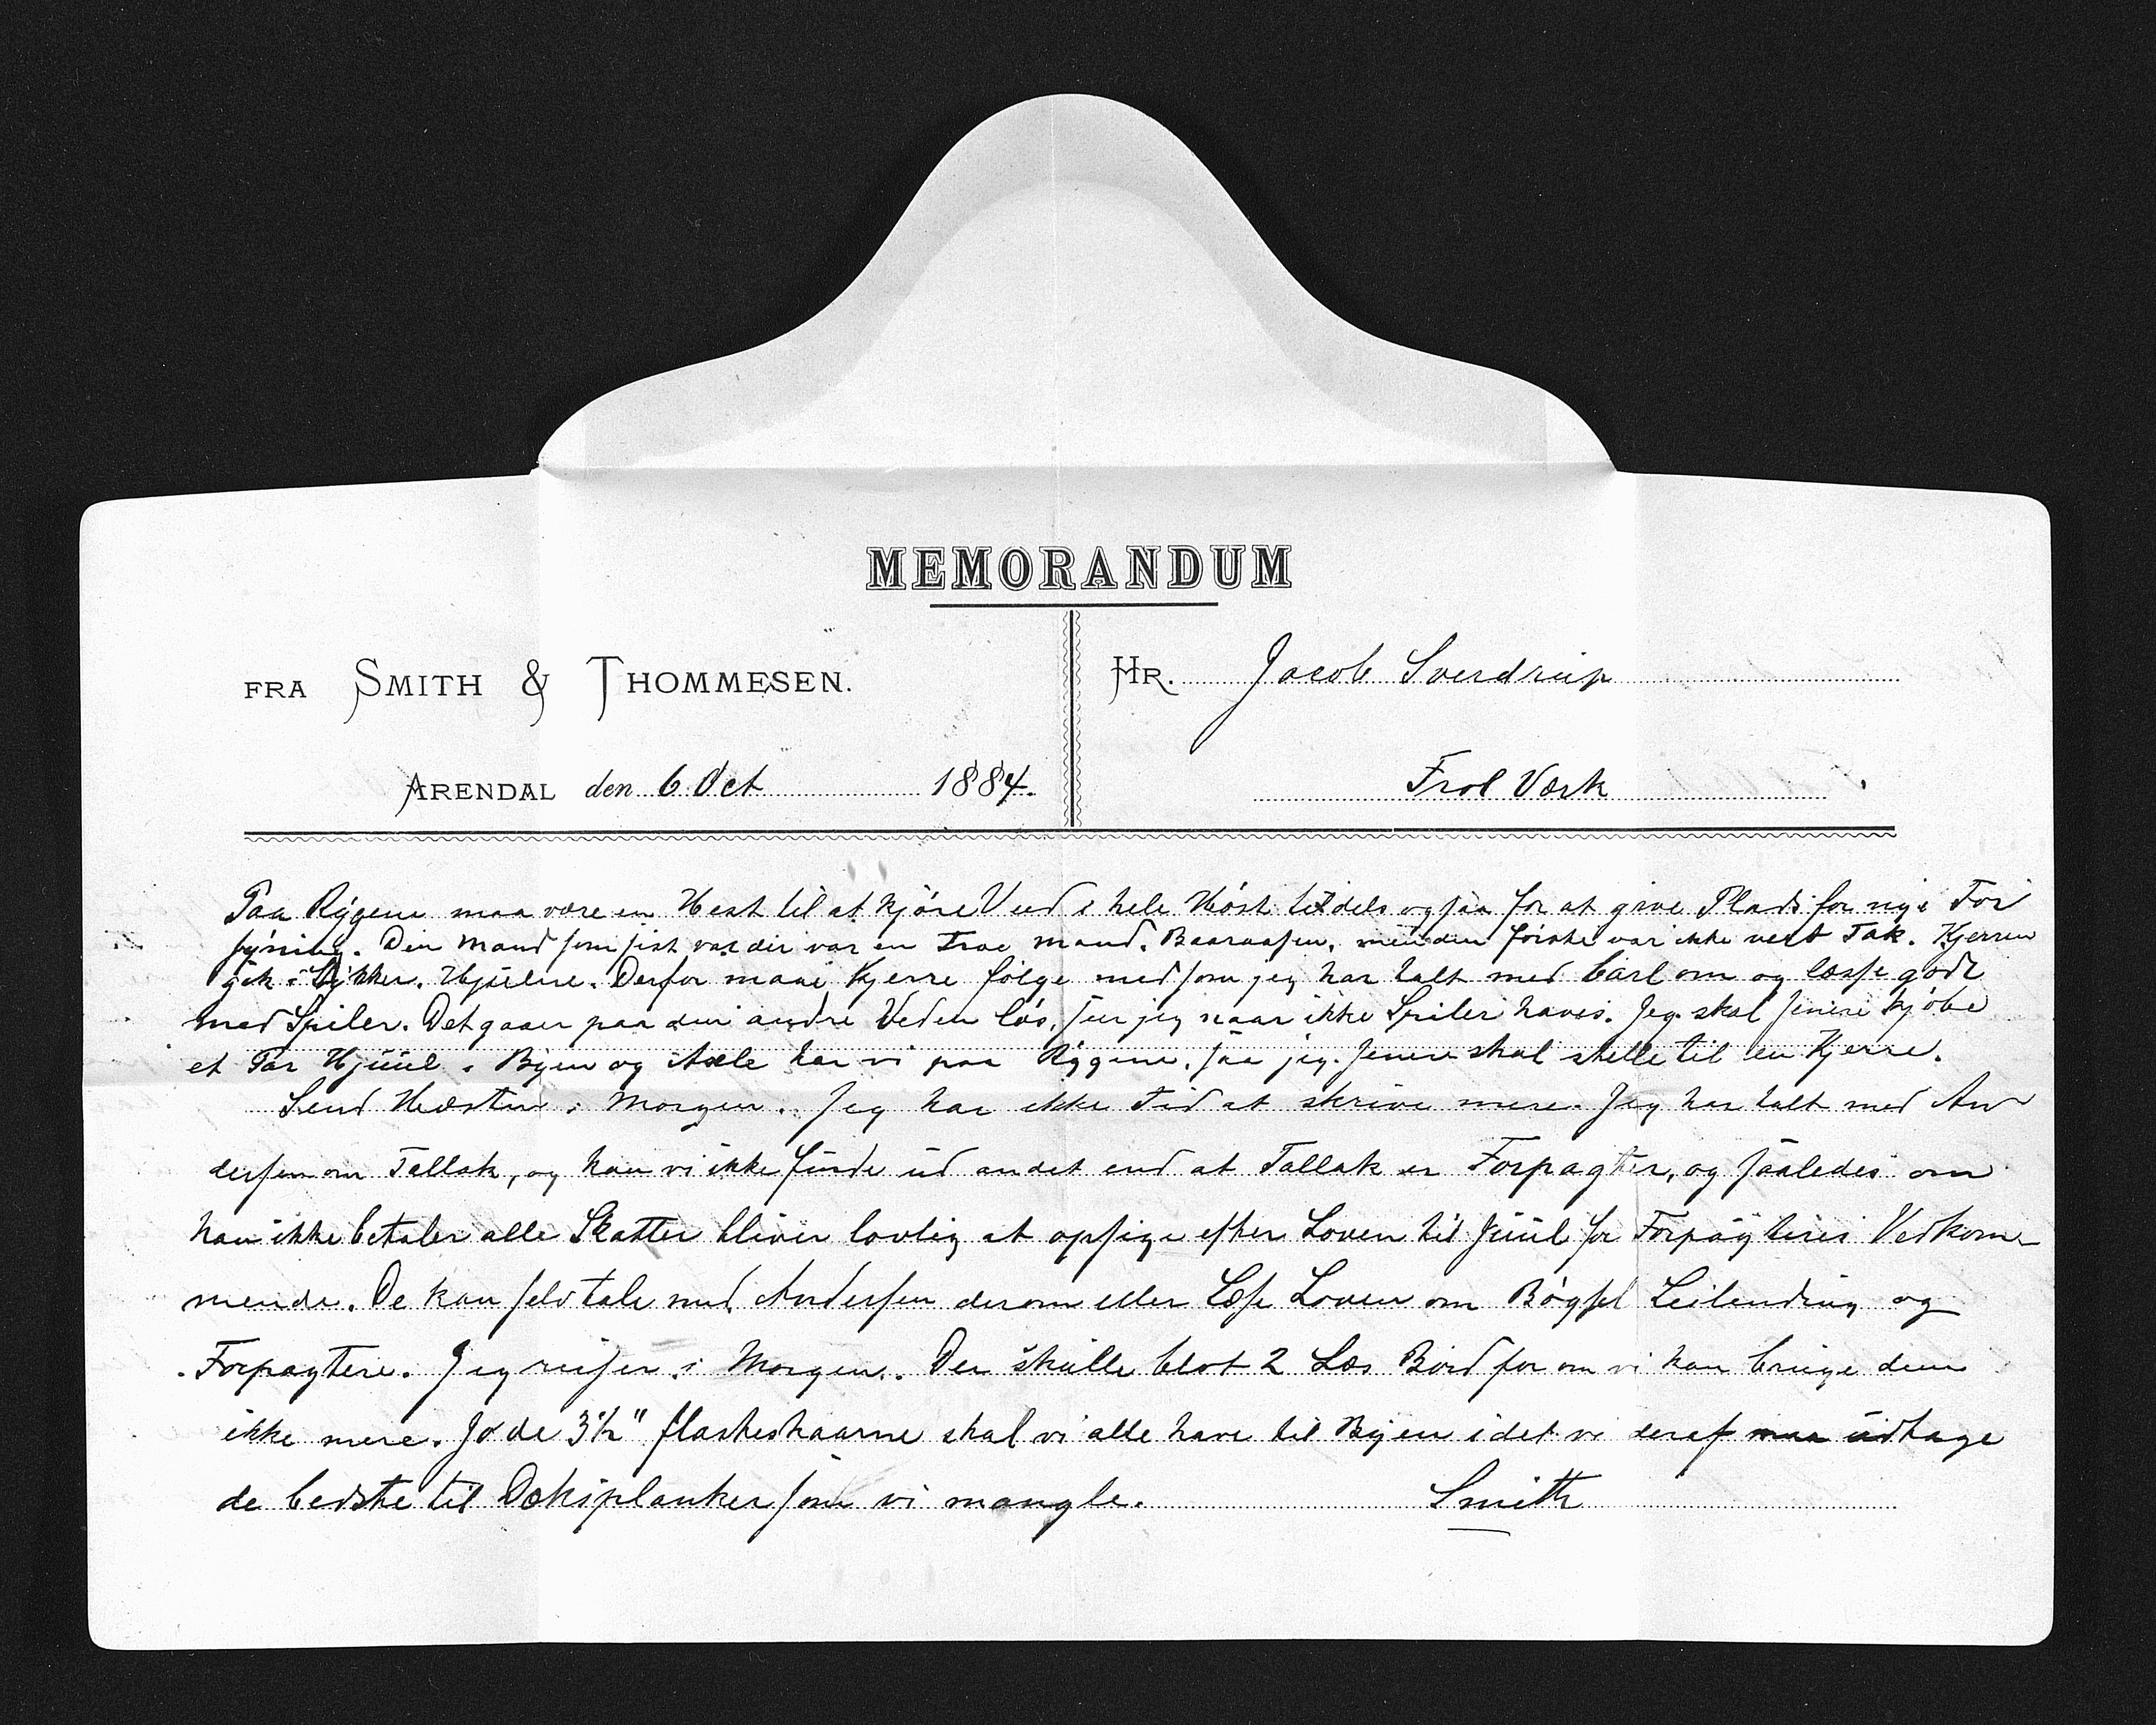 MEMORANDUM
FRA SMITH & THOMMESEN.
HR. Jacob Sverdrup
ARENDAL den 6 Oct 1884.
Frol Værk
Paa Rygene maa være en Hest til at kjøre Ved i hele Høst tildels ogsaa for at give Plads for nye For
syning. Den Mand som sist var der var en Trae mand. Baaraasen, men den første var ikke vert Tak. Kjerren
gik i Stykker. Hjulene. Derfor maa i Kjerre følge med som jeg har talt med Carl om og læsse godt
med Spiler. Det gaaer paa den andre Veden løs, seer jeg naar ikke Spiler haves. Jeg skal senere kjøbe
et Par Hjuul i Byen og Axle har vi paa Rygene, saa jeg senere skal stelle til en Kjerre.
Send Hesten i Morgen. Jeg har ikke Tid at skrive mere. Jeg har talt med An
dersen om Tallak, og kan vi ikke finde ud andet end at Tallak er Forpagter, og saaledes om
han ikke betaler alle Skatter bliver lovlig at opsige efter Loven til Juul for Forpagteres Vedkom-
mende. De kan selv tale med Andersen derom eller Læse Loven om Bøgsel Leilending og
Forpagtere. Jeg reiser i Morgen. Der skulle blot 2 Læs Bord for om vi kan bruge dem
ikke mere. Jo de 3½" flaskeskaarne skal vi alle have til Byen idet vi deraf maa udtage
de bedste til Dæksplanker som vi mangle. Smith